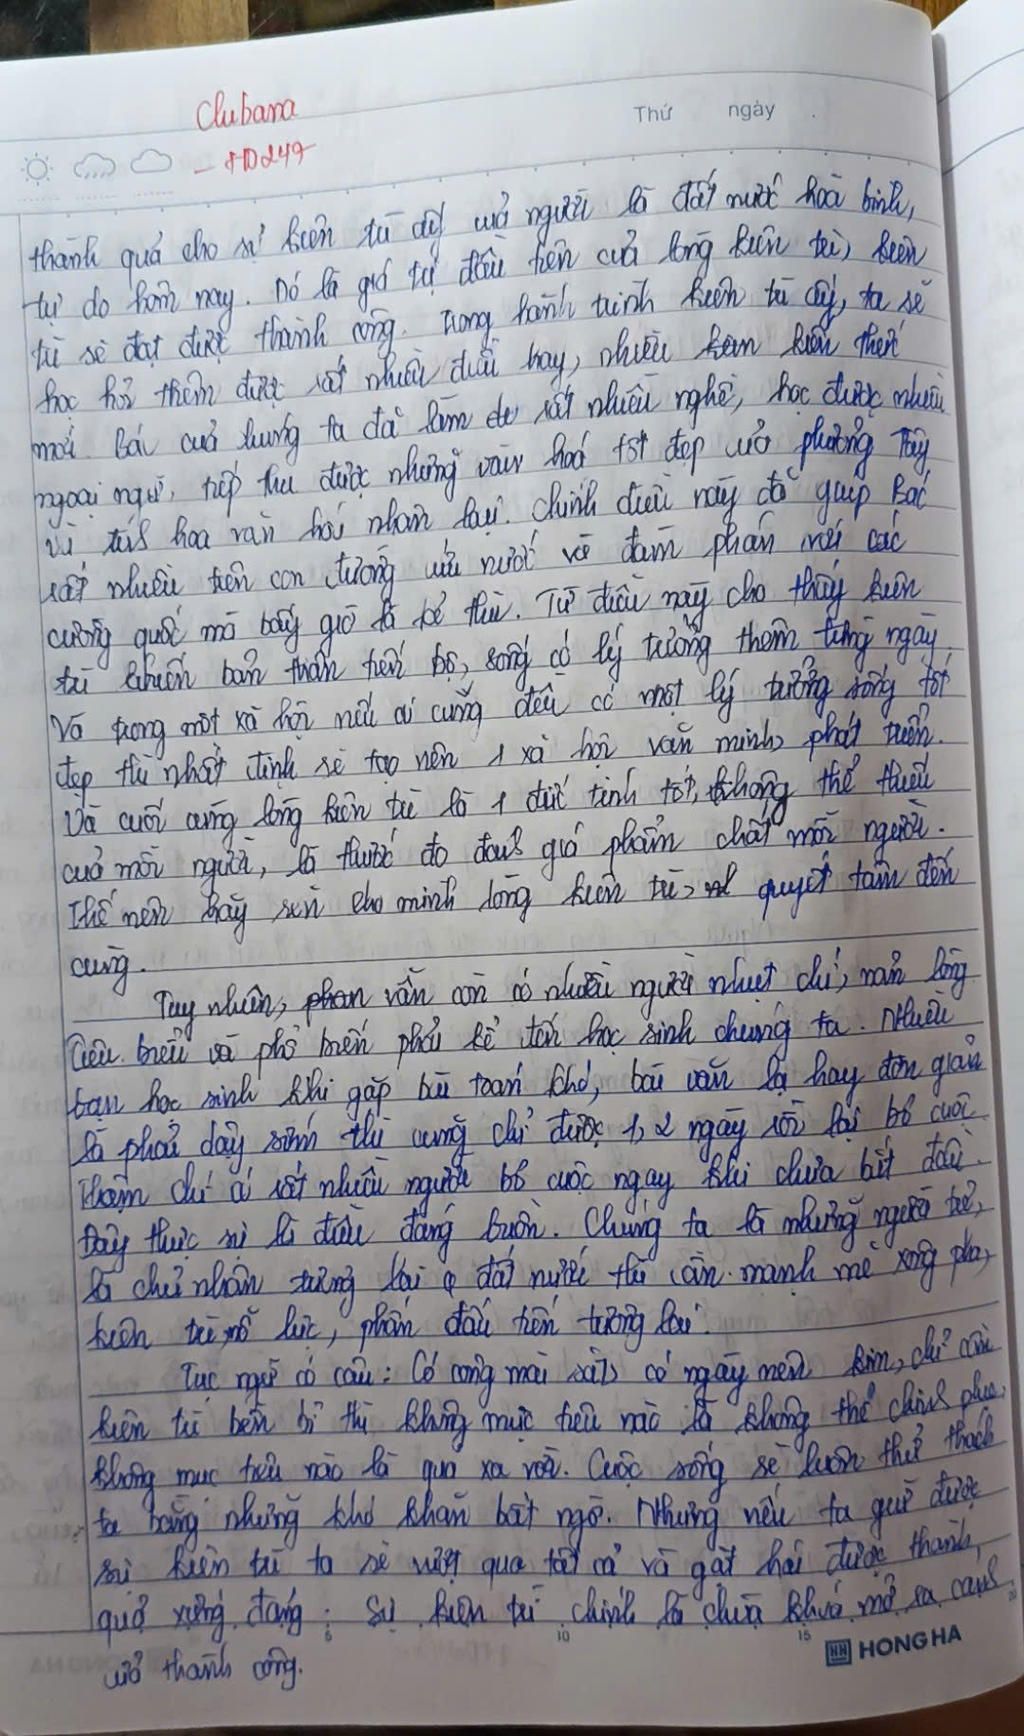 Clubana
Thứ ngày
- HD247
thành quả cho sự kiên trì ấy của người là đất nước hoà bình,
tự do hôm nay. Đó là giá trị đầu tiên của lòng kiên trì, kiên
trì sẽ đạt được thành công. Trong hành trình kiên trì ấy, ta sẽ
học hỏi thêm được rất nhiều điều hay, nhiều kiến thức
mới. Bác của chúng ta đã làm rất nhiều nghề, học được nhiều
ngoại ngữ, tiếp thu được những văn hoá tốt đẹp của phương Tây
và tinh hoa văn hoá nhân loại. Chính điều này đã giúp Bác
rất nhiều trên con đường cứu nước và đàm phán với các
cường quốc mà bấy giờ là kẻ thù. Từ điều này cho thấy kiên
trì khiến bản thân tiến bộ, sống có lý tưởng thêm từng ngày.
Và trong một xã hội nếu ai cũng đều có một lý tưởng sống tốt
đẹp thì nhất định sẽ tạo nên 1 xã hội văn minh, phát triển.
Và cuối cùng lòng kiên trì là 1 đức tính tốt, không thể thiếu
của mỗi người, là thước đo đánh giá phẩm chất mỗi người.
Thế nên hãy rèn cho mình lòng kiên trì, quyết tâm đến
cùng.
Tuy nhiên, vẫn còn có nhiều người nhụt chí, nản lòng
Tiêu biểu và phổ biến phải kể đến học sinh chúng ta. Nhiều
bạn học sinh khi gặp bài toán khó, bài văn lạ hay đơn giản
là phải dậy sớm thì cũng chỉ được 1, 2 ngày rồi lại bỏ cuộc.
Thậm chí có rất nhiều người bỏ cuộc ngay khi chưa bắt đầu.
Đây thực sự là điều đáng buồn. Chúng ta là những người trẻ,
là chủ nhân tương lai của đất nước thì cần mạnh mẽ xông pha,
kiên trì, nỗ lực, phấn đấu tiến tương lai.
Tục ngữ có câu: Có công mài sắt, có ngày nên kim, chỉ cần
kiên trì bền bỉ thì không mục tiêu nào là không thể chinh phục,
không mục tiêu nào là quá xa vời. Cuộc sống sẽ luôn thử thách
ta bằng những khó khăn bất ngờ. Nhưng nếu ta giữ được
sự kiên trì ta sẽ vượt qua tất cả và gặt hái được thành
quả xứng đáng. Sự kiên trì chính là chìa khoá mở ra cánh
cửa thành công.
5 10 15 20
HONG HA